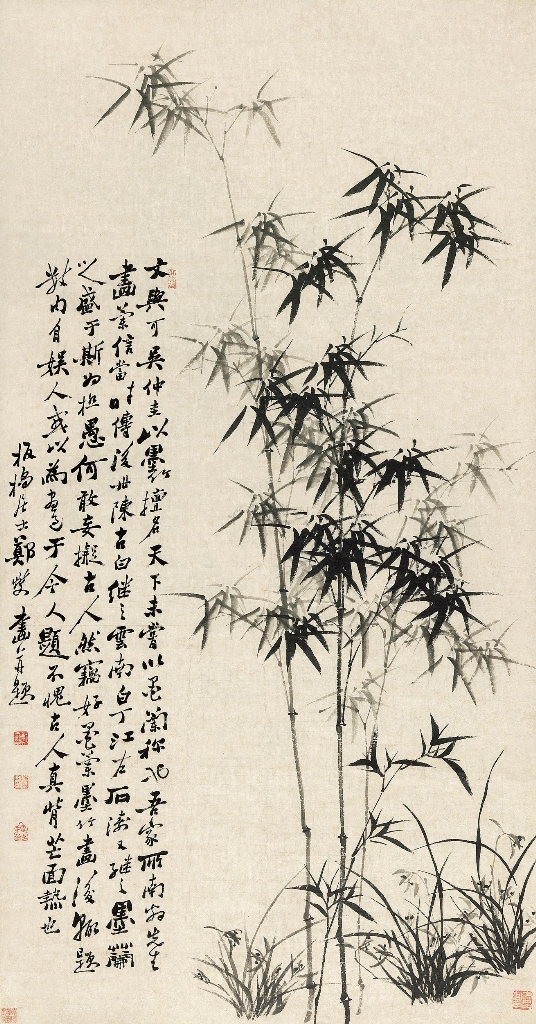 文與可吳仲圭以墨竹擅名天下未嘗以墨蘭称也吾家所南翁先生
畫蘭信當時傳後世陳古白继之雲南白丁江右石濤又继之墨蘭
之盛于斯為极愚何敢妄擬古人然竊好墨蘭墨竹畫後輙題
數句自娱人或以為
于今人題不愧古人真背芒面熱也
板橋居士鄭燮畫并題